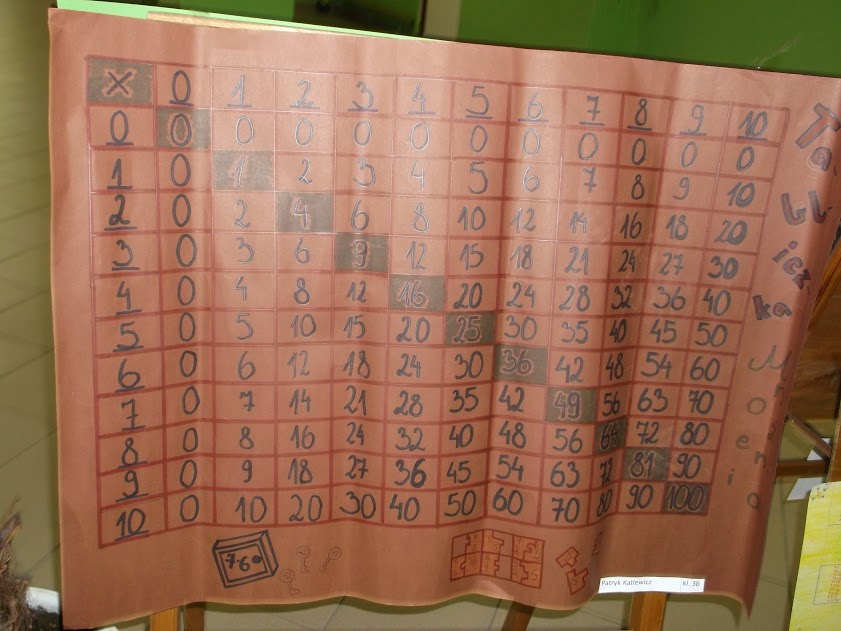 × 0 1 2 3 4 5 6 7 8 9 10
0 0 0 0 0 0 0 0 0 0 0 0
1 0 1 2 3 4 5 6 7 8 9 10
2 0 2 4 6 8 10 12 14 16 18 20
3 0 3 6 9 12 15 18 21 24 27 30
4 0 4 8 12 16 20 24 28 32 36 40
5 0 5 10 15 20 25 30 35 40 45 50
6 0 6 12 18 24 30 36 42 48 54 60
7 0 7 14 21 28 35 42 49 56 63 70
8 0 8 16 24 32 40 48 56 64 72 80
9 0 9 18 27 36 45 54 63 72 81 90
10 0 10 20 30 40 50 60 70 80 90 100
Patryk Katlewicz kl. 3b